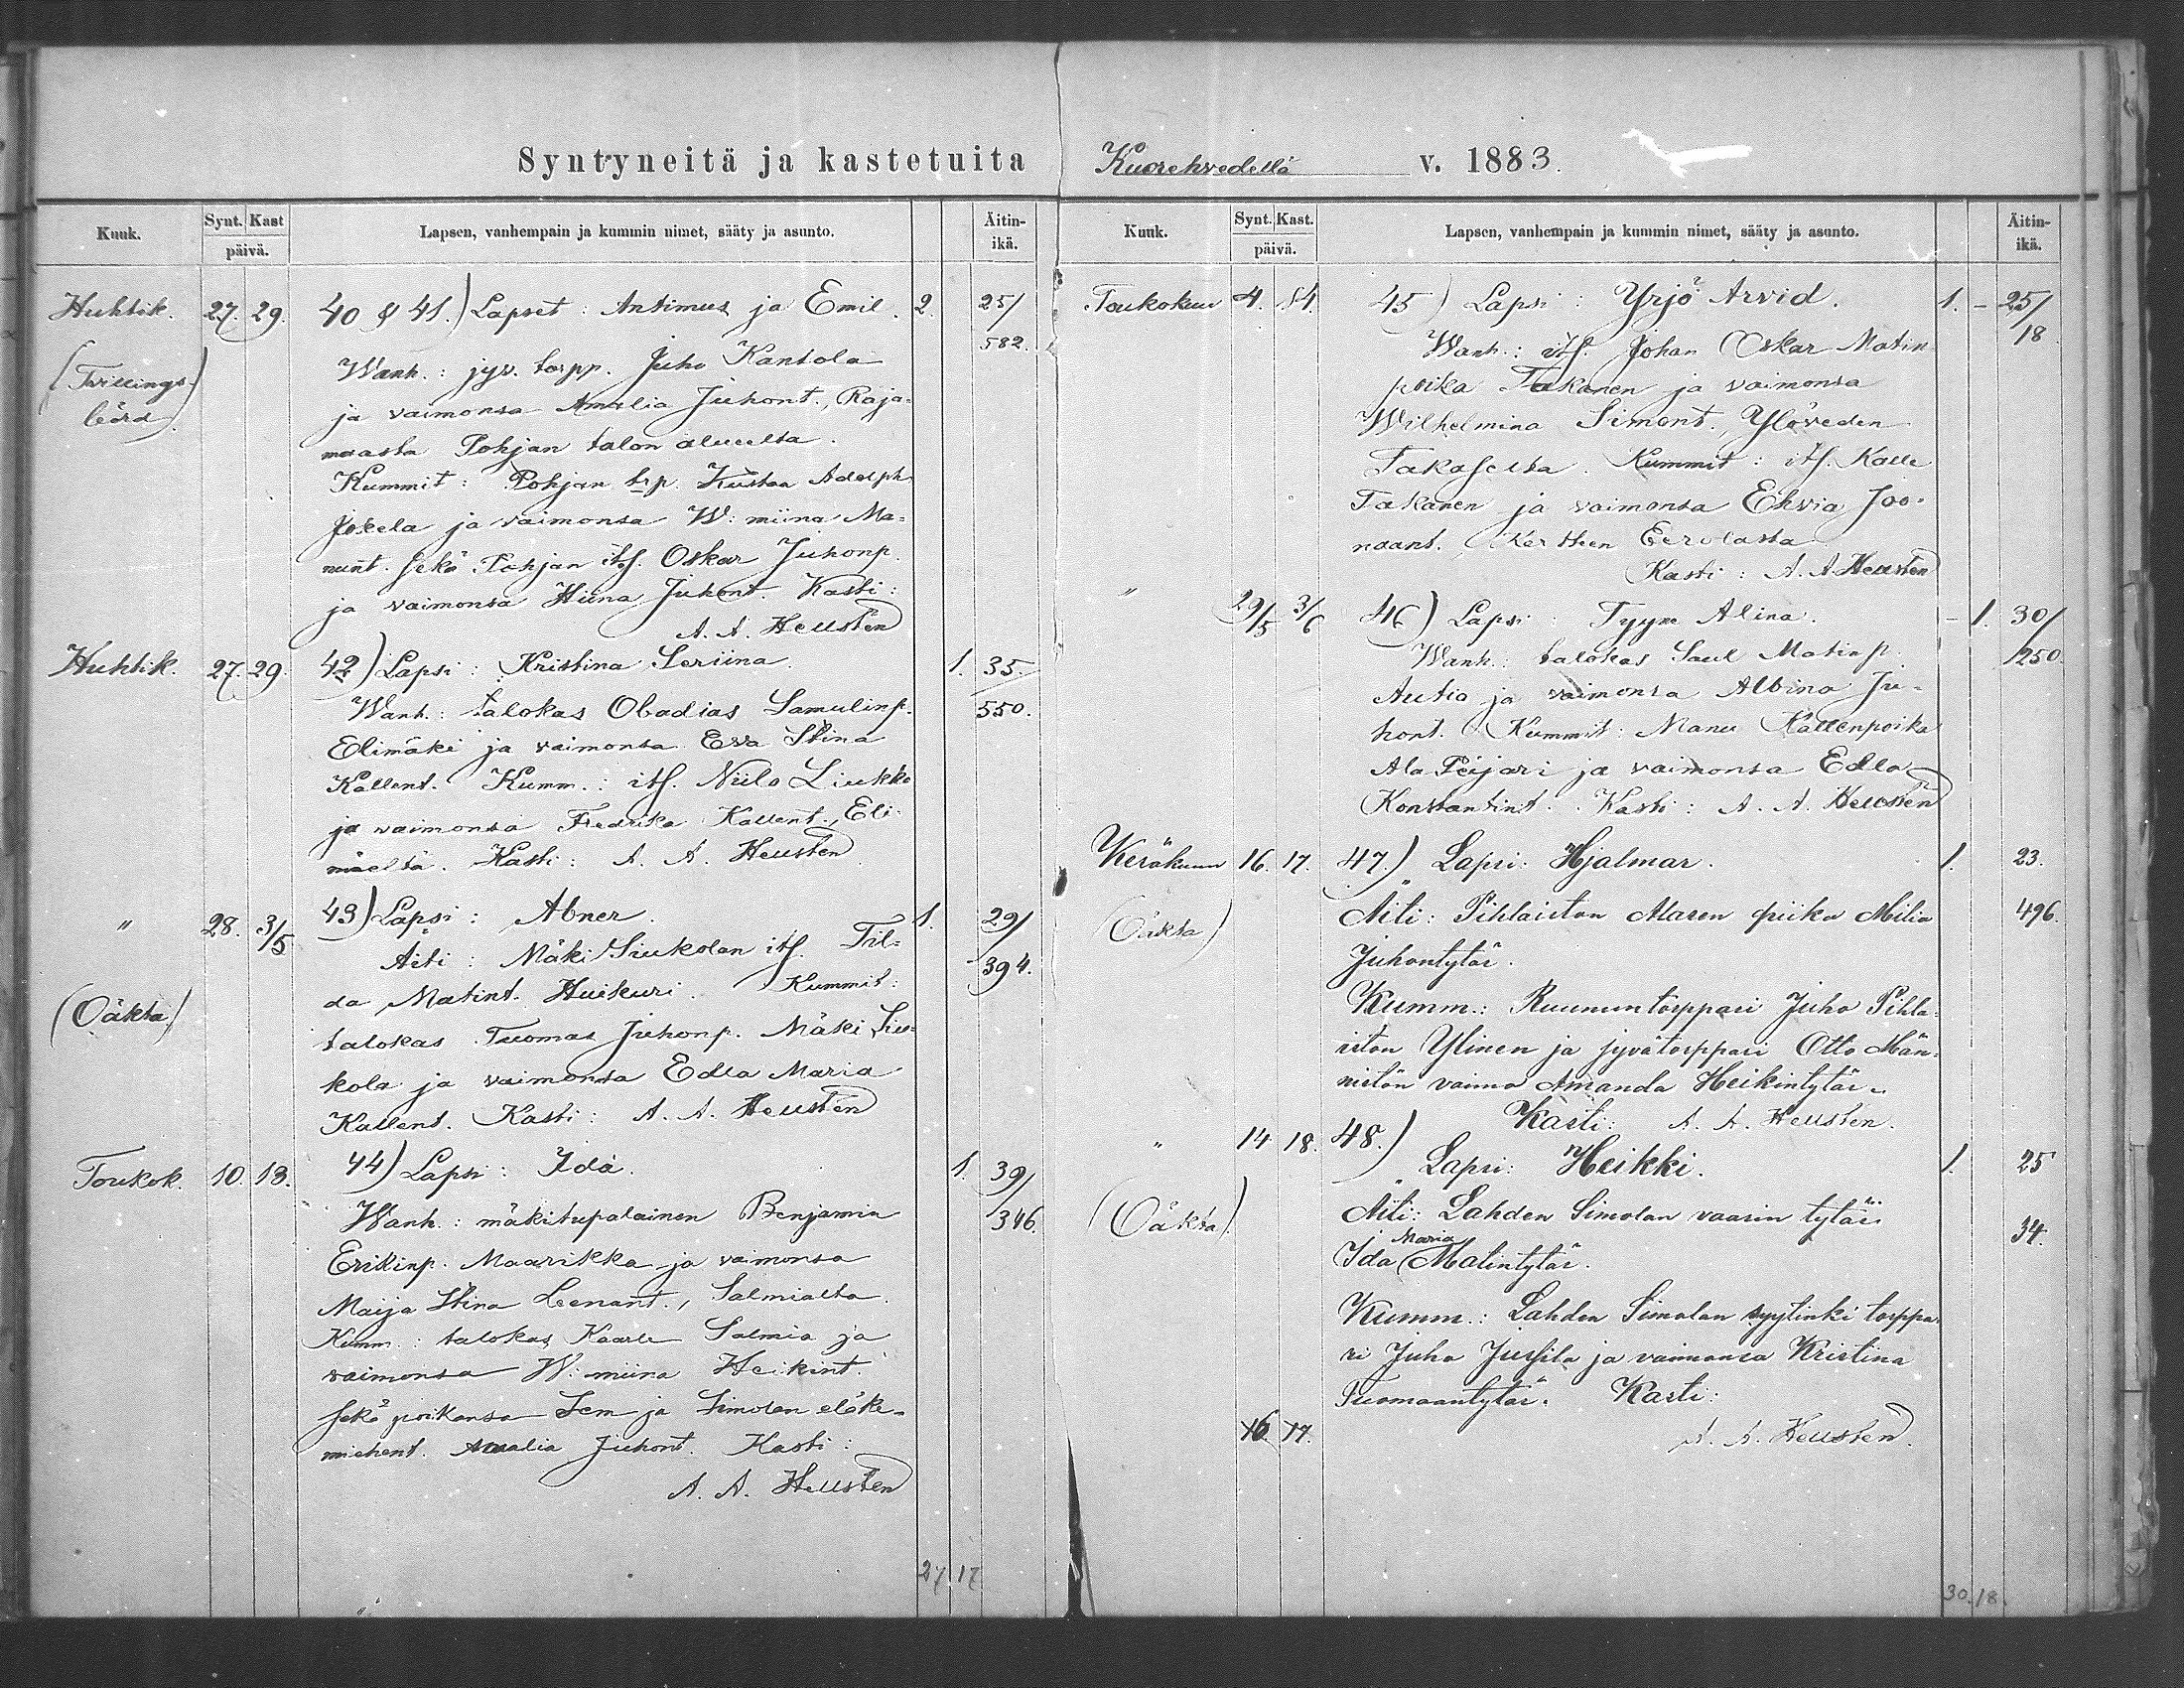 Syntyneitä ja kastetuita
Kuuk. Synt. Kast päivä. Lapsen, vanhempain ja kummin nimet, sääty ja asunto. Äitin-ikä.
Huhtik. 27. 29. 40 & 41.) Lapset: Antimus ja Emil. 2. 25/
582.
(Tvillings- Wanh.: jyv. torpp. Juho Kantola
börd) ja vaimonsa Amalia Juhont., Raja-
maasta Pohjan talon alueelta.
Kummit: Pohjan trp. Kustaa Adolph
Jokela ja vaimonsa W:miina Ma-
nunt. sekä Pohjan its. Oskar Juhonp.
ja vaimonsa Hiina Juhont. Kasti:
A. A. Hellstén
Huhtik. 27. 29. 42) Lapsi: Kristina Seriina. 1. 35.
Wanh.: talokas Obadias Samulinp. 550.
Elimäki ja vaimonsa Eva Stina
Kallent. Kumm.: its. Niilo Liukko
ja vaimonsa Fredrika Kallent., Eli-
mäeltä. Kasti: A. A. Hellstén
" 28. 3/5 43) Lapsi: Abner. 1. 29/
Äiti: Mäki Siukolan its. Til- 394.
da Matint. Huikuri. Kummit:
(Oäkta) talokas Tuomas Juhonp. Mäki Siu-
kola ja vaimonsa Edla Maria
Kallent. Kasti: A. A. Hellstén
Toukok. 10. 13. 44) Lapsi: Ida. 1. 39/
Wanh.: mäkitupalainen Benjamin 346.
Erikinp. Maarikka ja vaimonsa
Maija Stina Leenant., Salmialta.
Kumm.: talokas Kaarle Salmia ja
vaimonsa W:miina Heikint.
sekä poikansa Sem ja Simolan eläke-
miehent. Amalia Juhont. Kasti:
A. A. Hellstén
27 17
Kuorehvedellä v. 1883.
Kuuk. Synt. Kast. päivä. Lapsen, vanhempain ja kummin nimet, sääty ja asunto. Äitin-ikä.
Toukokuu 4. 14. 45) Lapsi: Yrjö Arvid. 1. - 25/
Wanh.: its. Johan Oskar Matin 18
poika Takanen ja vaimonsa
Wilhelmina Simont., Ylöveden
Takaselta. Kummit: its. Kalle
Takanen ja vaimonsa Ehvia Joo-
naant., Kerttuen Eerolasta
Kasti: A. A. Hellstén
" 29/5 3/6 46) Lapsi: Tyyne Alina. - 1. 30/
Wanh.: talokas Saul Matinp. 250.
Autio ja vaimonsa Albina Ju-
hont. Kummit: Manu Kallenpoika
Ala Peijari ja vaimonsa Edla
Konstantint. Kasti: A. A. Hellstén
Keräkuun 16. 17. 47.) Lapsi: Hjalmar. 1. 23.
(Oäkta) Äiti: Pihlaiston Alasen piika Milia 496.
Juhontytär.
Kumm.: Ruunun torppari Juho Pihla-
iston Ylinen ja jyvätorppari Otto Män-
nistön vaimo Amanda Heikintytär.
Kasti: A. A. Hellstén.
" 14 18. 48.) Lapsi: Heikki. 1. 25
(Oäkta). Äiti: Lahden Simolan vaarin tytär 34.
Maria
Ida Matintytär.
Kumm.: Lahden Simolan syytinki torppa-
ri Juho Jussila ja vaimonsa Kristina
Tuomaantytär. Kasti:
16. 17. A. A. Hellstén.
30. 18.